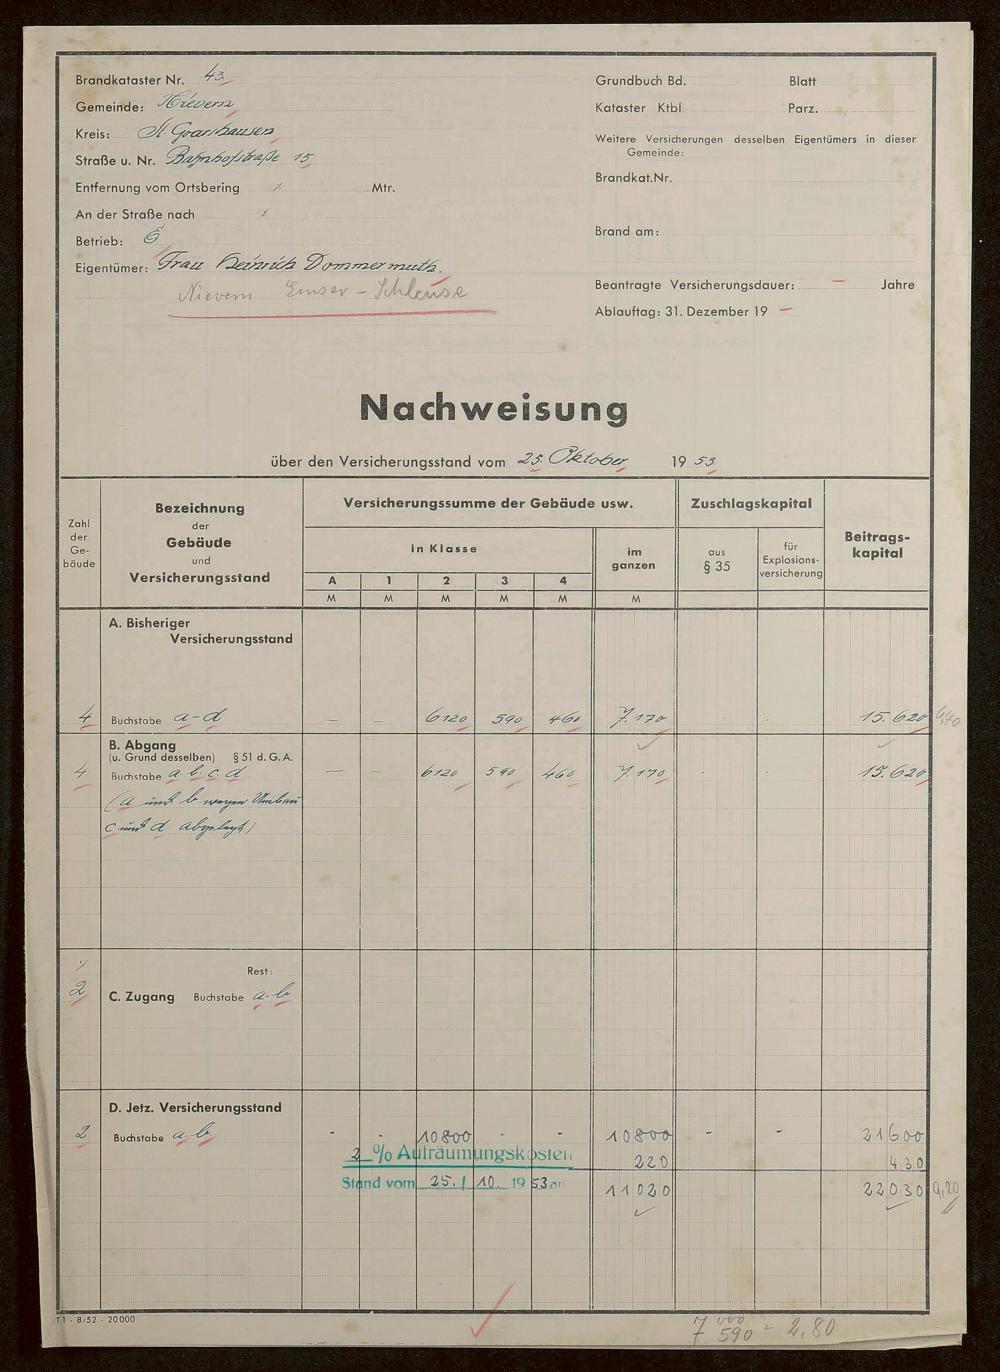 Brandkataster Nr. 43
Gemeinde: Nievern
Kreis: St. Goarshausen
Straße u. Nr. Bahnhofstraße 15
Entfernung vom Ortsbering / Mtr.
An der Straße nach /
Betrieb:
Eigentümer: Frau Heinrich Dommermuth.
Nievern Emser-Schleuse
Grundbuch Bd. Blatt
Kataster Ktbl. Parz.
Weitere Versicherungen desselben Eigentümers in dieser
Gemeinde:
Brandkat.Nr.
Brand am:
Beantragte Versicherungsdauer: – Jahre
Ablauftag: 31. Dezember 19 –
Nachweisung
über den Versicherungsstand vom 25. Oktober 1953
Zahl
der
Ge-
bäude
Bezeichnung
der
Gebäude
und
Versicherungsstand
Versicherungssumme der Gebäude usw.
in Klasse
A 1 2 3 4
M M M M M
im
ganzen
M
Zuschlagskapital
aus
§ 35
für
Explosions-
versicherung
Beitrags-
kapital
A. Bisheriger
Versicherungsstand
4 Buchstabe a-d – – 6120 590 460 7.170 . . 15.620
B. Abgang
(u. Grund desselben) § 51 d. G. A.
4 Buchstabe a b c d – – 6120 590 460 7.170 . . 15.620
(a und b wegen Umbau
c und d abgelegt)
Rest:
2 C. Zugang Buchstabe a.b
D. Jetz. Versicherungsstand
2 Buchstabe a.b - - 10800 - - 10800 - - 21600
2 % Aufräumungskosten 220 430
Stand vom 25. / 10. 1953 an 11020 22030 9,20
T 1 - 8/52 - 20000
7000
590 = 2,80